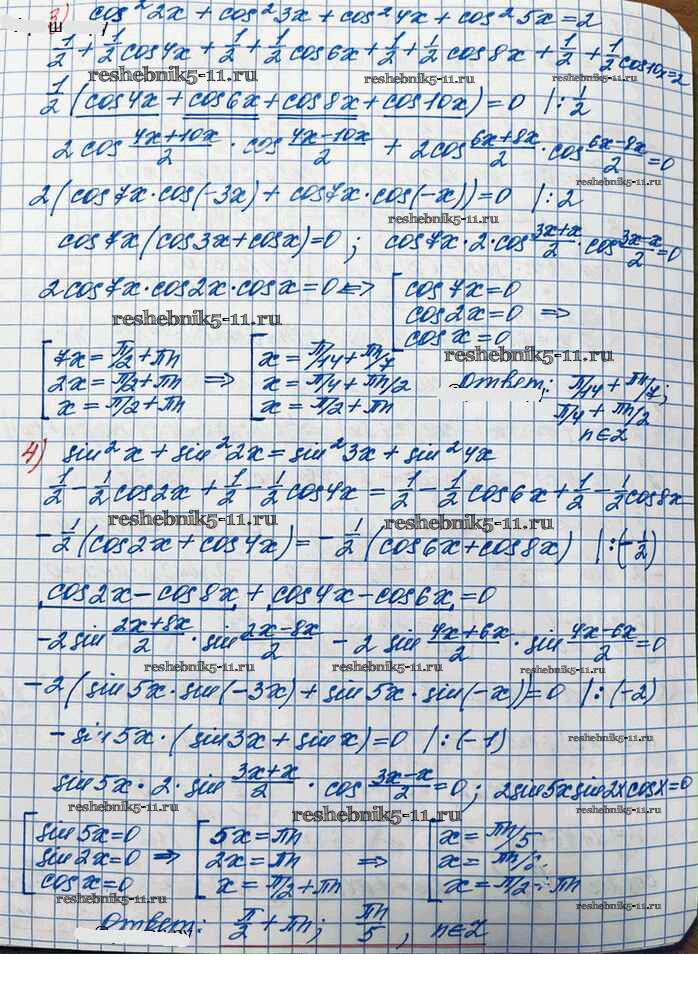 3) cos²2x + cos²3x + cos²4x + cos²5x = 2
1/2 + 1/2 cos4x + 1/2 + 1/2 cos6x + 1/2 + 1/2 cos8x + 1/2 + 1/2 cos10x = 2
reshebnik5-11.ru
1/2 (cos4x + cos6x + cos8x + cos10x) = 0 |: 1/2
2cos (4x+10x)/2 · cos (4x−10x)/2 + 2cos (6x+8x)/2 · cos (6x−8x)/2 = 0
reshebnik5-11.ru
2(cos7x·cos(−3x) + cos7x·cos(−x)) = 0 |: 2
reshebnik5-11.ru
cos7x(cos3x+cosx)=0; cos7x·2·cos (3x+x)/2 · cos (3x−x)/2 = 0
2cos7x·cos2x·cosx=0 <=> [ cos7x=0
cos2x=0 =>
cosx=0
reshebnik5-11.ru
reshebnik5-11.ru
[ 7x = π/2 + πn [ x = π/14 + πn/7
2x = π/2 + πn => x = π/4 + πn/2 Ответ: π/14 + πn/7;
x = π/2 + πn x = π/2 + πn π/4 + πn/2
n∈Z
4) sin²x + sin²2x = sin²3x + sin²4x
1/2 − 1/2 cos2x + 1/2 − 1/2 cos4x = 1/2 − 1/2 cos6x + 1/2 − 1/2 cos8x
reshebnik5-11.ru
reshebnik5-11.ru
−1/2 (cos2x + cos4x) = −1/2 (cos6x + cos8x) |:(−1/2)
cos2x − cos8x + cos4x − cos6x = 0
−2sin (2x+8x)/2 · sin (2x−8x)/2 − 2 sin (4x+6x)/2 · sin (4x−6x)/2 = 0
reshebnik5-11.ru
reshebnik5-11.ru
−2(sin5x·sin(−3x) + sin5x·sin(−x)) = 0 |:(−2)
−sin5x·(sin3x + sinx) = 0 |:(−1)
reshebnik5-11.ru
sin5x·2·sin (3x+x)/2 · cos (3x−x)/2 = 0; 2sin5xsin2xcosx=0
reshebnik5-11.ru
reshebnik5-11.ru
[ sin5x=0 [ 5x = πn [ x = πn/5
sin2x=0 => 2x = πn => x = πn/2
cosx=0 x = π/2 + πn x = π/2 + πn
reshebnik5-11.ru
reshebnik5-11.ru
Ответ: π/2 + πn; πn/5, n∈Z